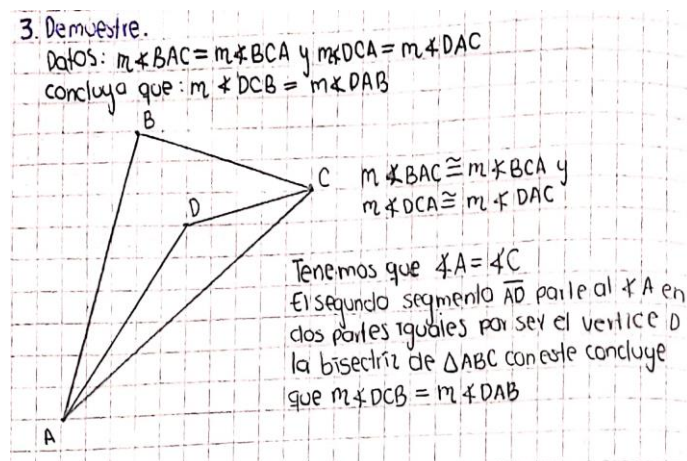 3. Demuestre.
Datos: m∡BAC = m∡BCA y m∡DCA = m∡DAC
concluya que: m∡DCB = m∡DAB
B
C
D
A
m∡BAC ≅ m∡BCA y
m∡DCA ≅ m∡DAC
Tenemos que ∡A = ∡C
El segundo segmento A̅D̅ parte al ∡A en
dos partes iguales por ser el vertice D
la bisectriz de △ABC con este concluye
que m∡DCB = m∡DAB